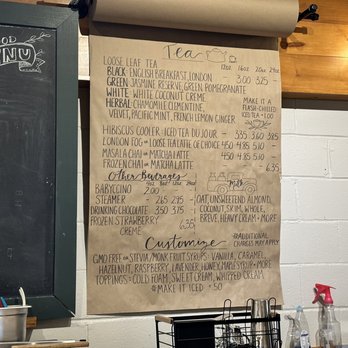 OOD
MENU
Tea
12oz. 16oz. 20oz. 24oz.
LOOSE LEAF TEA
BLACK: ENGLISH BREAKFAST, LONDON 3.00 3.25 -
GREEN: JASMINE RESERVE, GREEN POMEGRANATE
WHITE: WHITE COCONUT CREME
HERBAL: CHAMOMILE CLEMENTINE,
VELVET, PACIFIC MINT, FRENCH LEMON GINGER
MAKE IT A
FLASH-CHILLED
ICED TEA - 1.00
HIBISCUS COOLER OR ICED TEA DU JOUR - 3.35 3.60 3.85
LONDON FOG OR LOOSE TEA LATTE OF CHOICE 4.50 4.85 5.10 -
MASALA CHAI OR MATCHA LATTE 4.50 4.85 5.10 -
FROZEN CHAI OR MATCHA LATTE 6.35
Other Beverages
BABYCCINO 2.00
STEAMER - 2.65 2.95 -
DRINKING CHOCOLATE 3.50 3.75 -
FROZEN STRAWBERRY 6.35
CREME
MILK
OAT, UNSWEETENED ALMOND,
COCONUT, SKIM, WHOLE,
BREVE, HEAVY CREAM + MORE
Customize
-TRADITIONAL
CHARGES MAY APPLY
GMO FREE OR STEVIA/MONK FRUIT SYRUPS: VANILLA, CARAMEL,
HAZELNUT, RASPBERRY, LAVENDER, HONEY, MAPLE SYRUP + MORE
TOPPINGS: COLD FOAM, SWEET CREAM, WHIPPED CREAM
MAKE IT ICED + .50